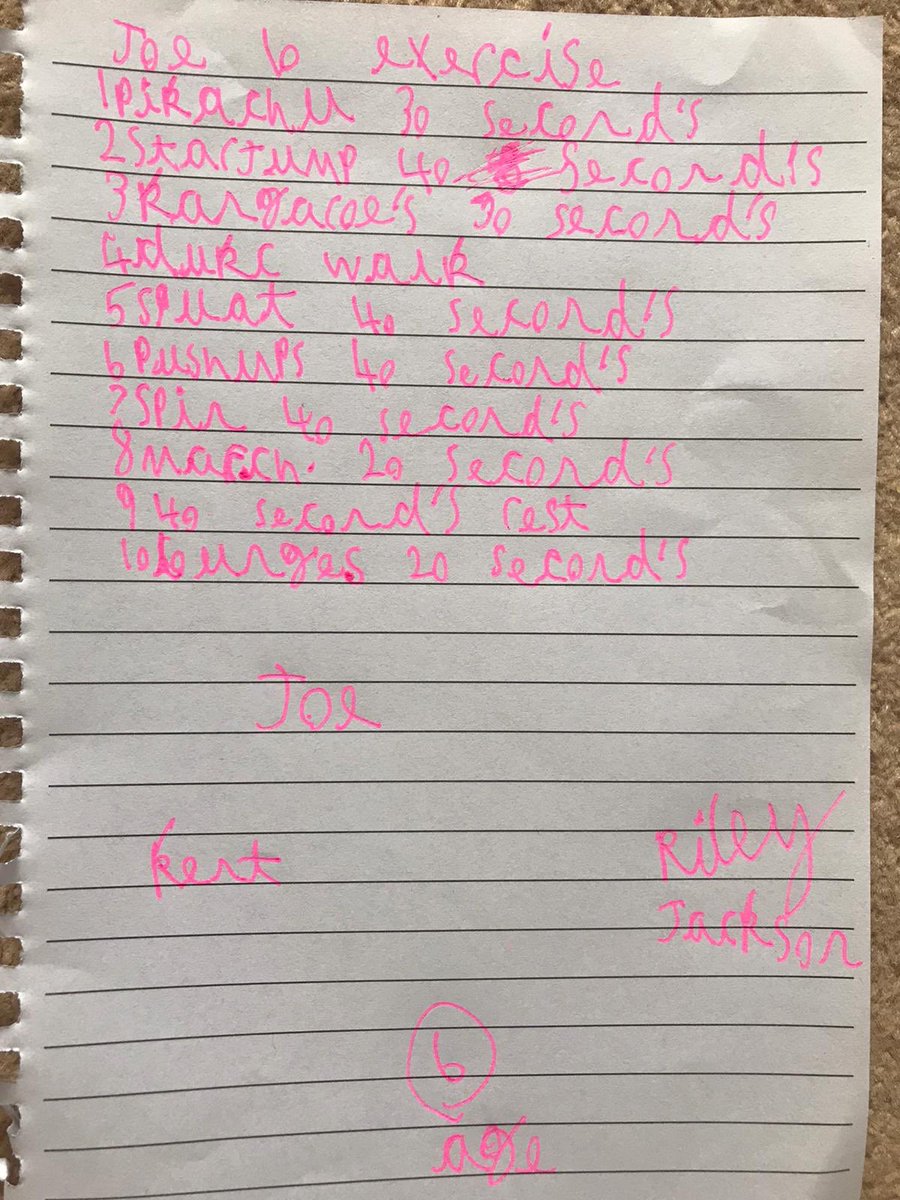 Joe 6 exercise
1pikachu 30 second's
2starjump 40 second's
3kangaroe's 30 second's
4dukc walk
5spuat 40 second's
6pushups 40 second's
7spin 40 second's
8march. 20 second's
9 40 second's rest
10lounges 20 second's
Joe
kent
Riley
Jackson
6
age